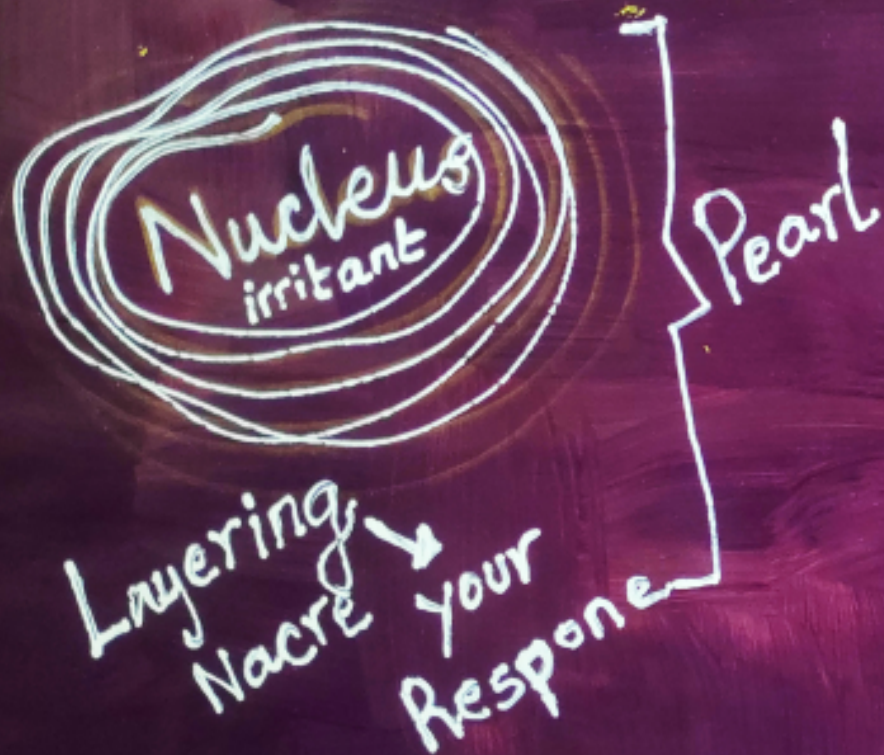 Nucleus
irritant
Pearl
Layering
Nacre
your
Respone